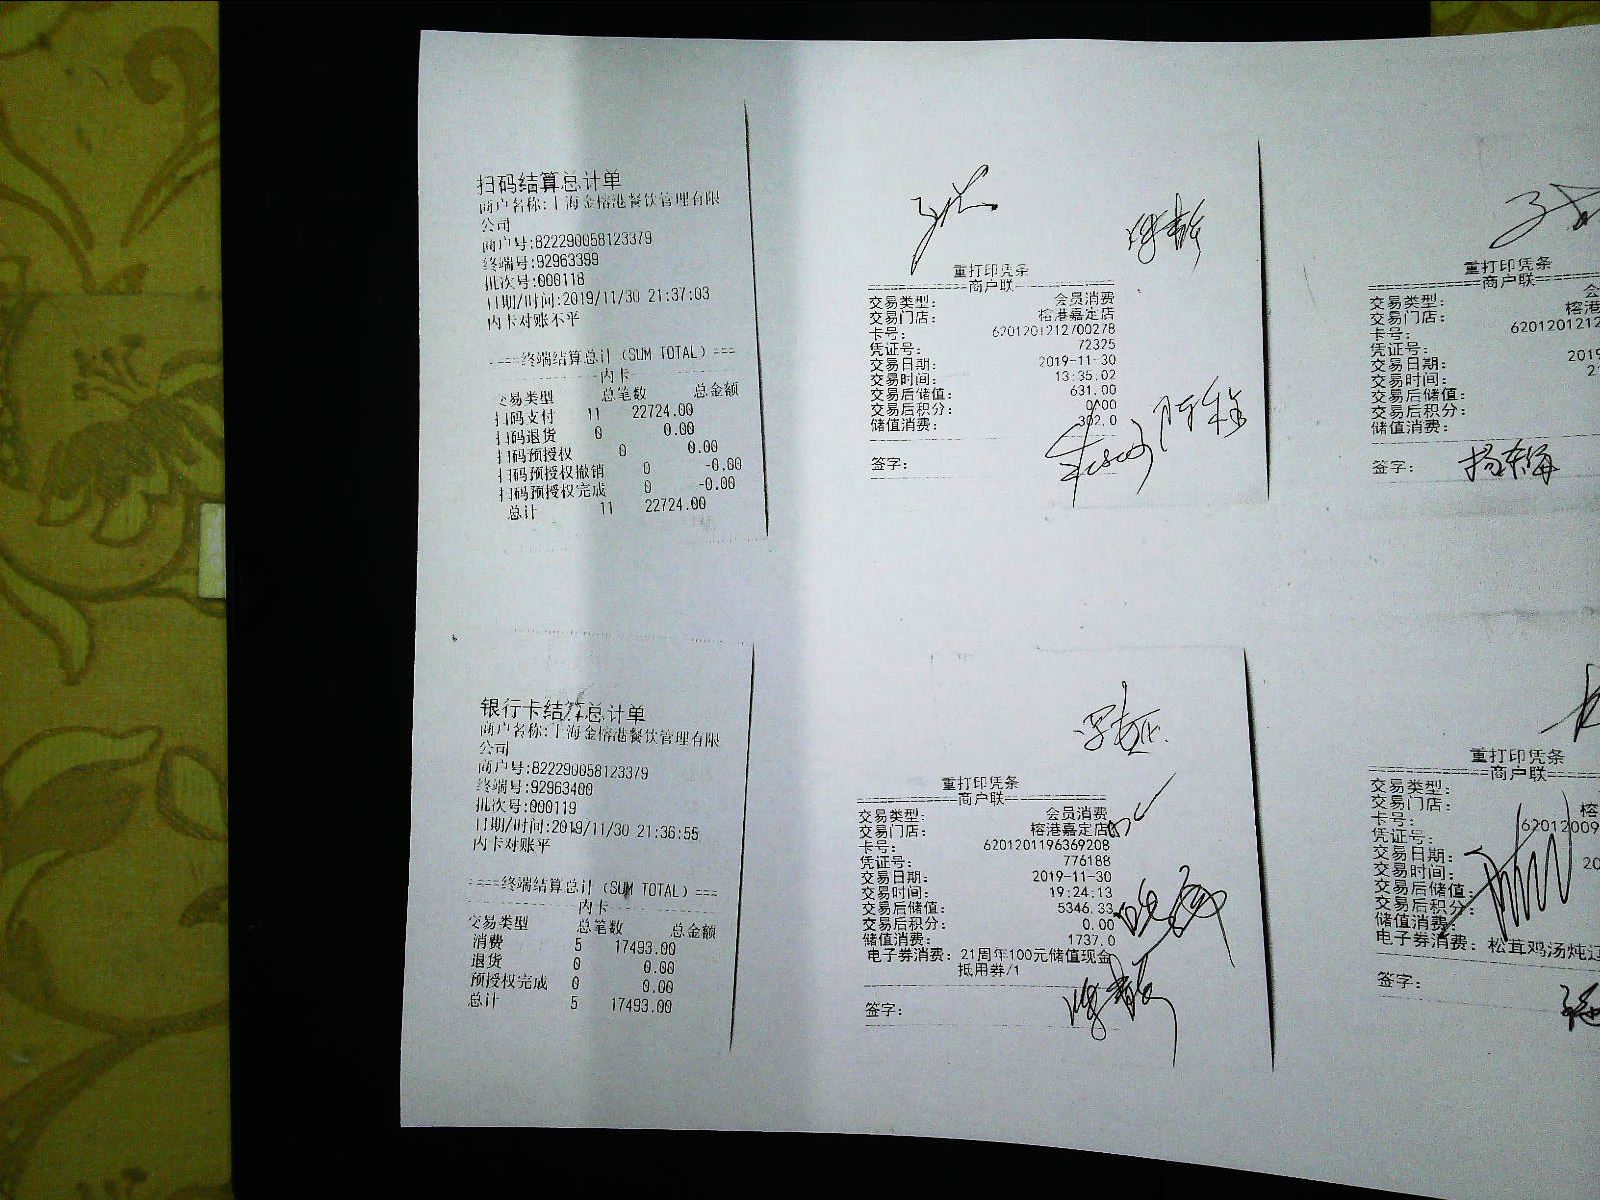 扫码结算总计单
商户名称:上海金榕港餐饮管理有限
公司
商户号:822290058123379
终端号:92963399
批次号:000118
日期/时间:2019/11/30 21:37:03
内卡对账不平
====终端结算总计（SUM TOTAL）===
内卡
交易类型 总笔数 总金额
扫码支付 11 22724.00
扫码退货 0 0.00
扫码预授权 0 0.00
扫码预授权撤销 0 -0.00
扫码预授权完成 0 -0.00
总计 11 22724.00
银行卡结算总计单
商户名称:上海金榕港餐饮管理有限
公司
商户号:822290058123379
终端号:92963400
批次号:000119
日期/时间:2019/11/30 21:36:55
内卡对账平
====终端结算总计（SUM TOTAL）===
内卡
交易类型 总笔数 总金额
消费 5 17493.00
退货 0 0.00
预授权完成 0 0.00
总计 5 17493.00
重打印凭条
商户联
交易类型: 会员消费
交易门店: 榕港嘉定店
卡号: 6201201212700278
凭证号: 72325
交易日期: 2019-11-30
交易时间: 13:35.02
交易后储值: 631.00
交易后积分: 0.00
储值消费: 302.0
签字:
重打印凭条
商户联
交易类型: 会员消费
交易门店: 榕港嘉定店
卡号: 6201201196369208
凭证号: 776188
交易日期: 2019-11-30
交易时间: 19:24:13
交易后储值: 5346.33
交易后积分: 0.00
储值消费: 1737.0
电子券消费: 21周年100元储值现金
抵用券/1
签字:
重打印凭条
商户联
交易类型: 会
交易门店: 榕港
卡号: 6201201212
凭证号:
交易日期: 2019
交易时间: 2
交易后储值:
交易后积分:
储值消费:
签字:
重打印凭条
商户联
交易类型:
交易门店: 榕
卡号: 62012009
凭证号:
交易日期: 20
交易时间:
交易后储值:
交易后积分:
储值消费:
电子券消费: 松茸鸡汤炖辽
签字: